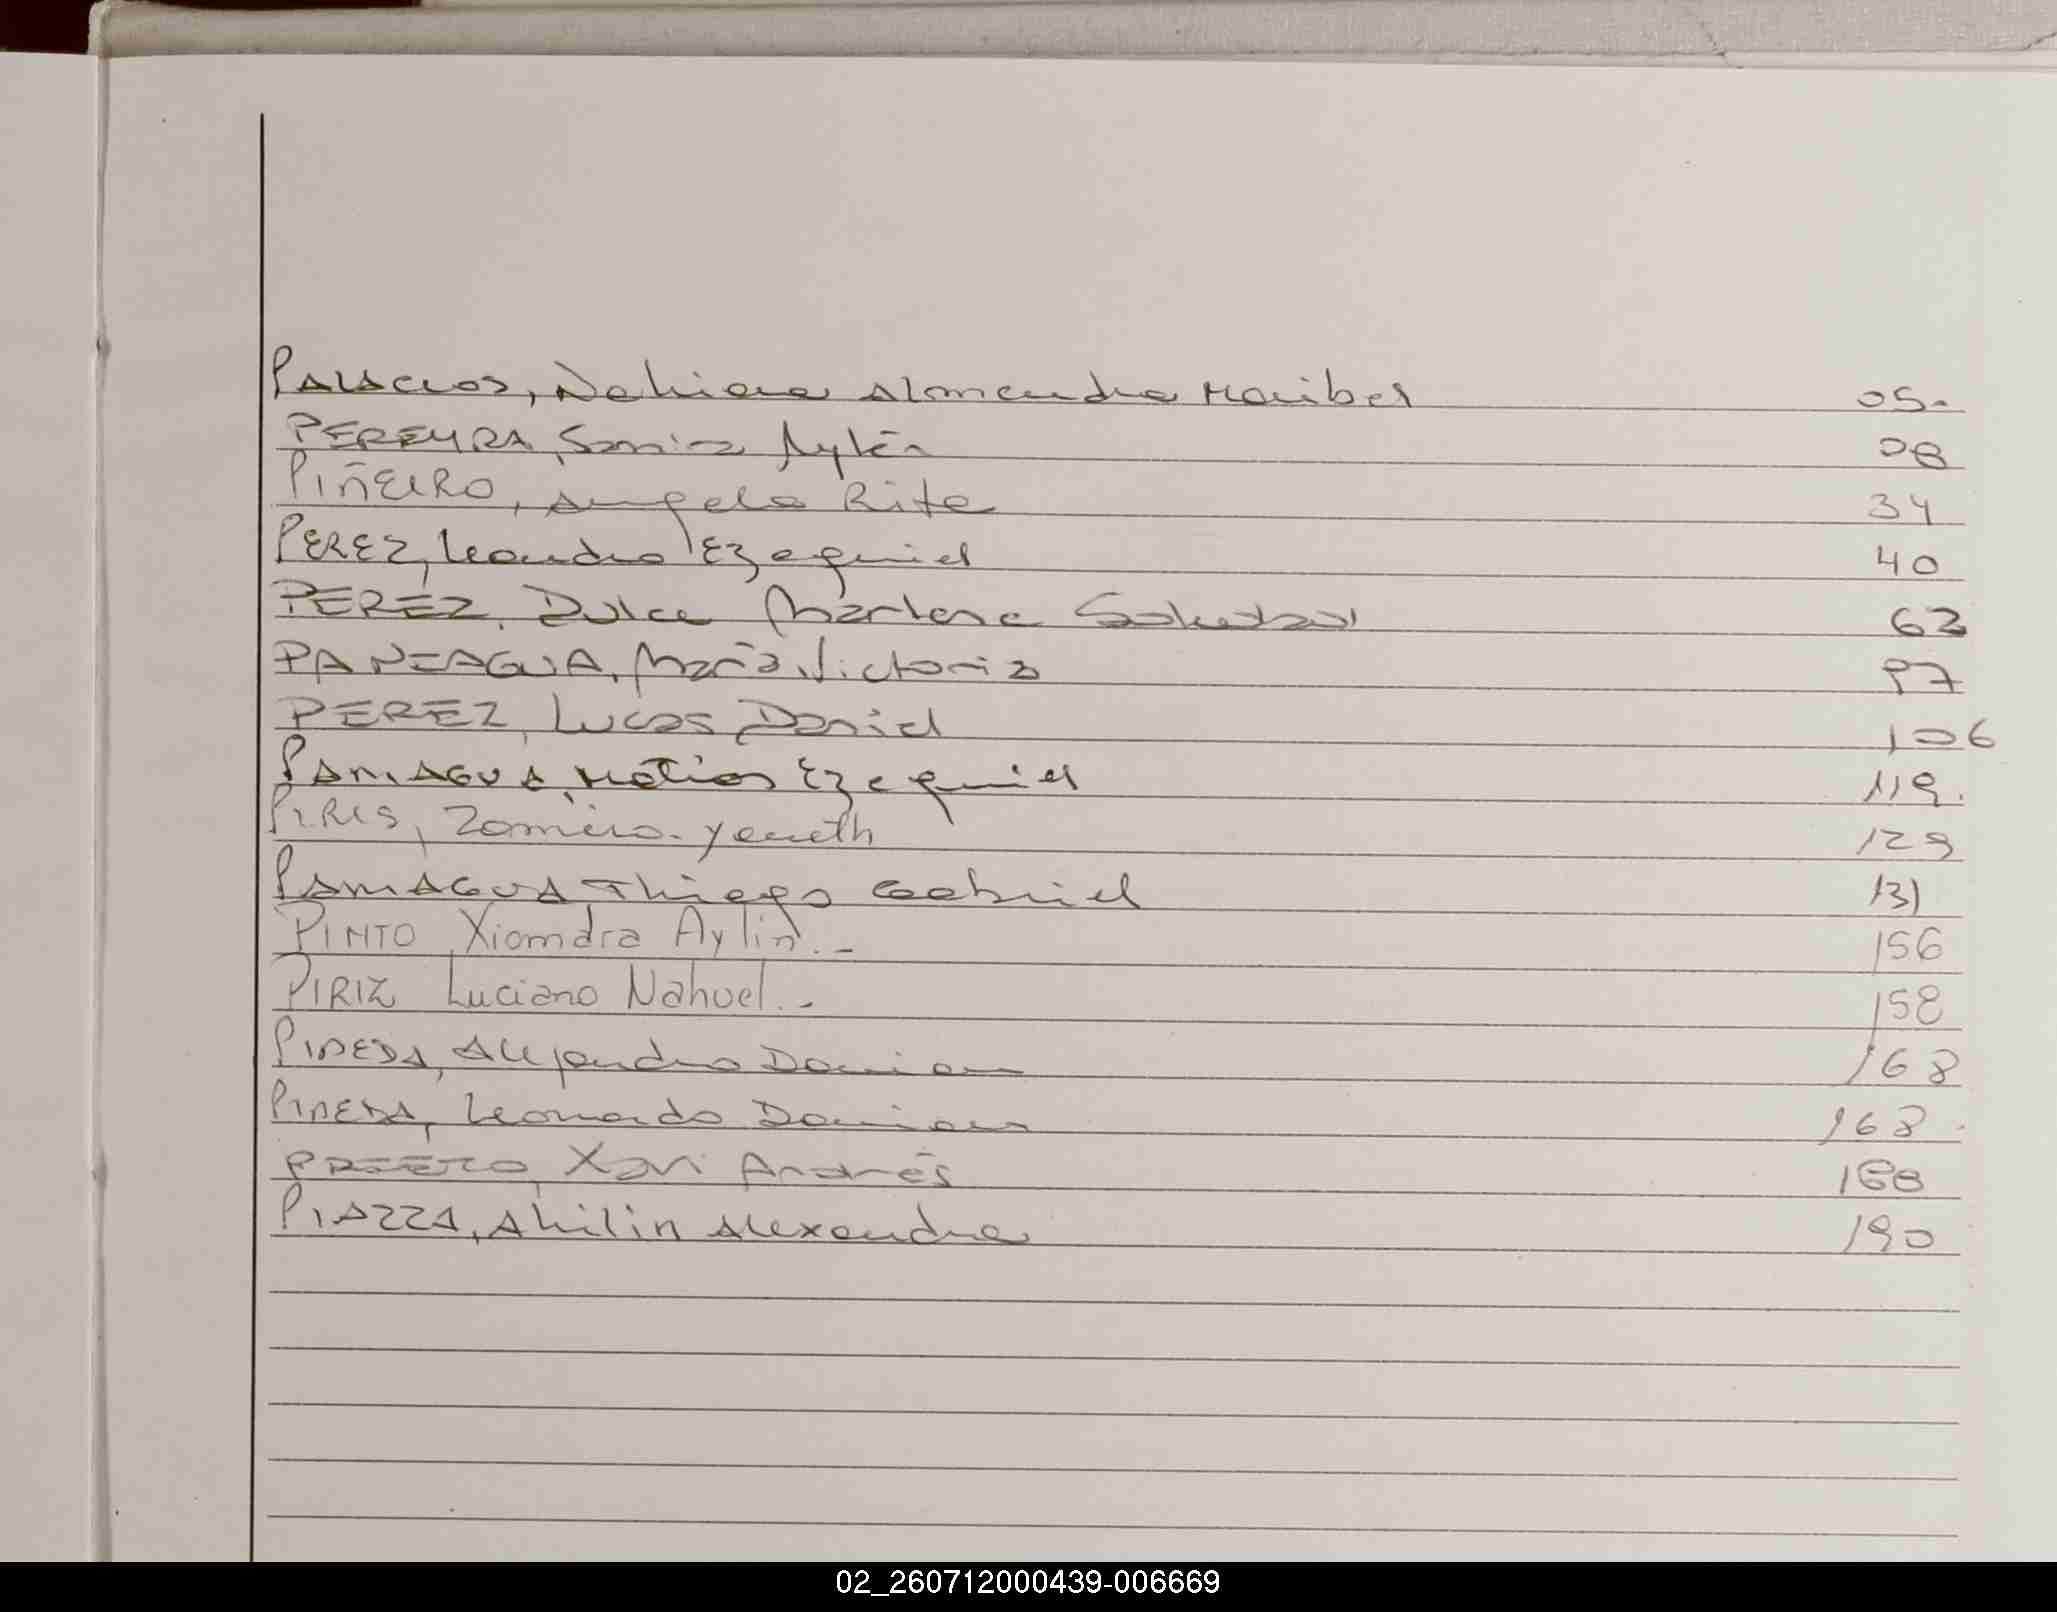 PALACIOS, Nahiara Almendra Maribel 05.
PEREYRA, Samira Aylén 08
PIÑEIRO, Angela Rita 34
PEREZ, Leandro Ezequiel 40
PEREZ, Dulce Marlene Soledad 62
PANIAGUA, María Victoria 97
PEREZ, Lucas Daniel 106
PANIAGUA, Matías Ezequiel 119.
PIRIS, Zamira Yaneth 129
PANIAGUA Thiago Gabriel 131
PINTO, Xiomara Aylin.- 156
PIRIZ Luciano Nahuel.- 158
PINEDA, Alejandro Damian 168
PINEDA, Leonardo Damian 168
PRIETO, Xavi Andrés 188
PIAZZA, Ahilin Alexandra 190
02_260712000439-006669